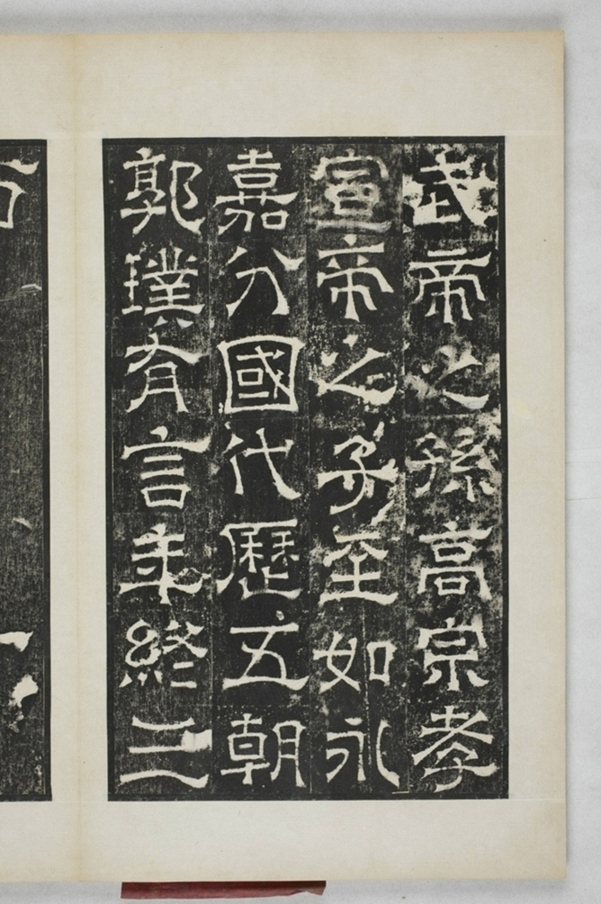 武帝之孫高宗孝
宣帝之子至如永
嘉分國代歷五朝
郭璞有言年終三